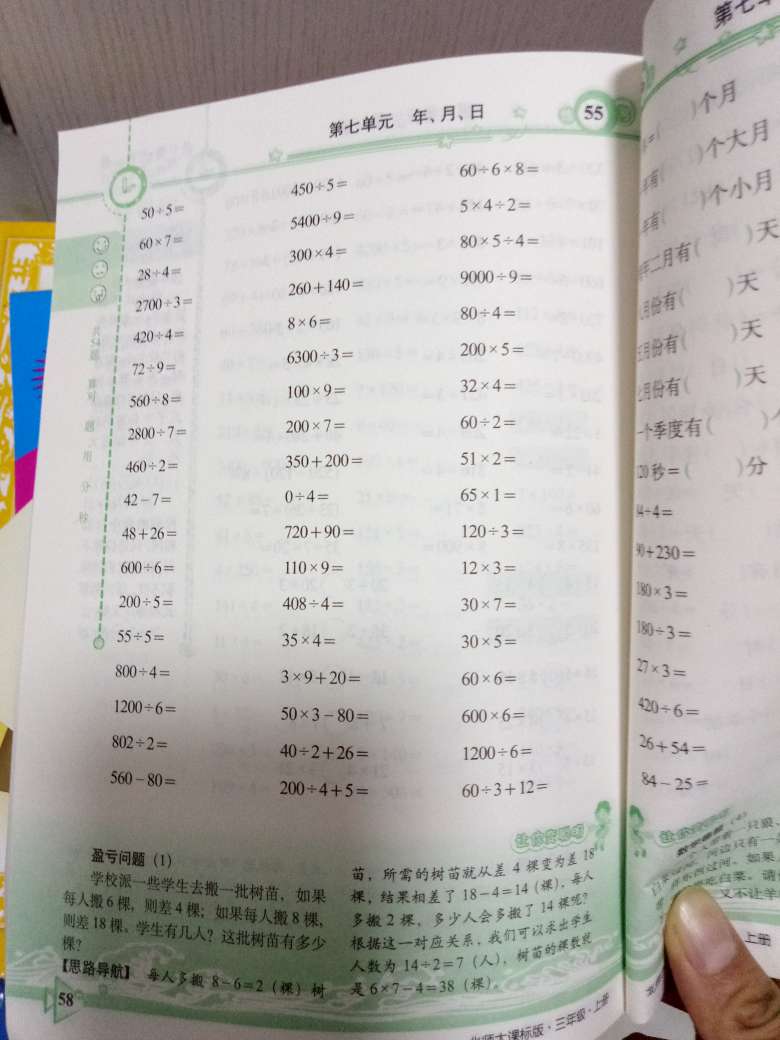 第七单元 年、月、日
55
50÷5=
60×7=
28÷4=
2700÷3=
420÷4=
72÷9=
560÷8=
2800÷7=
460÷2=
42－7=
48＋26=
600÷6=
200÷5=
55÷5=
800÷4=
1200÷6=
802÷2=
560－80=
450÷5=
5400÷9=
300×4=
260＋140=
8×6=
6300÷3=
100×9=
200×7=
350＋200=
0÷4=
720＋90=
110×9=
408÷4=
35×4=
3×9＋20=
50×3－80=
40÷2＋26=
200÷4＋5=
60÷6×8=
5×4÷2=
80×5÷4=
9000÷9=
80÷4=
200×5=
32×4=
60÷2=
51×2=
65×1=
120÷3=
12×3=
30×7=
30×5=
60×6=
600×6=
1200÷6=
60÷3＋12=
题 用 分 秒
盈亏问题（1）
学校派一些学生去搬一批树苗，如果
每人搬6棵，则差4棵；如果每人搬8棵，
则差18棵。学生有几人？这批树苗有多少
棵？
【思路导航】 每人多搬 8－6=2（棵）树
苗，所需的树苗就从差4棵变为差18
棵，结果相差了18－4=14（棵），每人
多搬2棵，多少人会多搬了14棵呢？
根据这一对应关系，我们可以求出学生
人数为14÷2=7（人），树苗的棵数就
是6×7－4=38（棵）。
58
师大课标版·三年级·上册
第七
)个月
)个大月
年有( )个小月
年二月有( )天
月份有( )天
五月份有( )天
月份有( )天
个季度有(
20秒=( )分
4÷4=
90＋230=
180×3=
180÷3=
27×3=
420÷6=
26＋54=
84－25=
(4)
上册